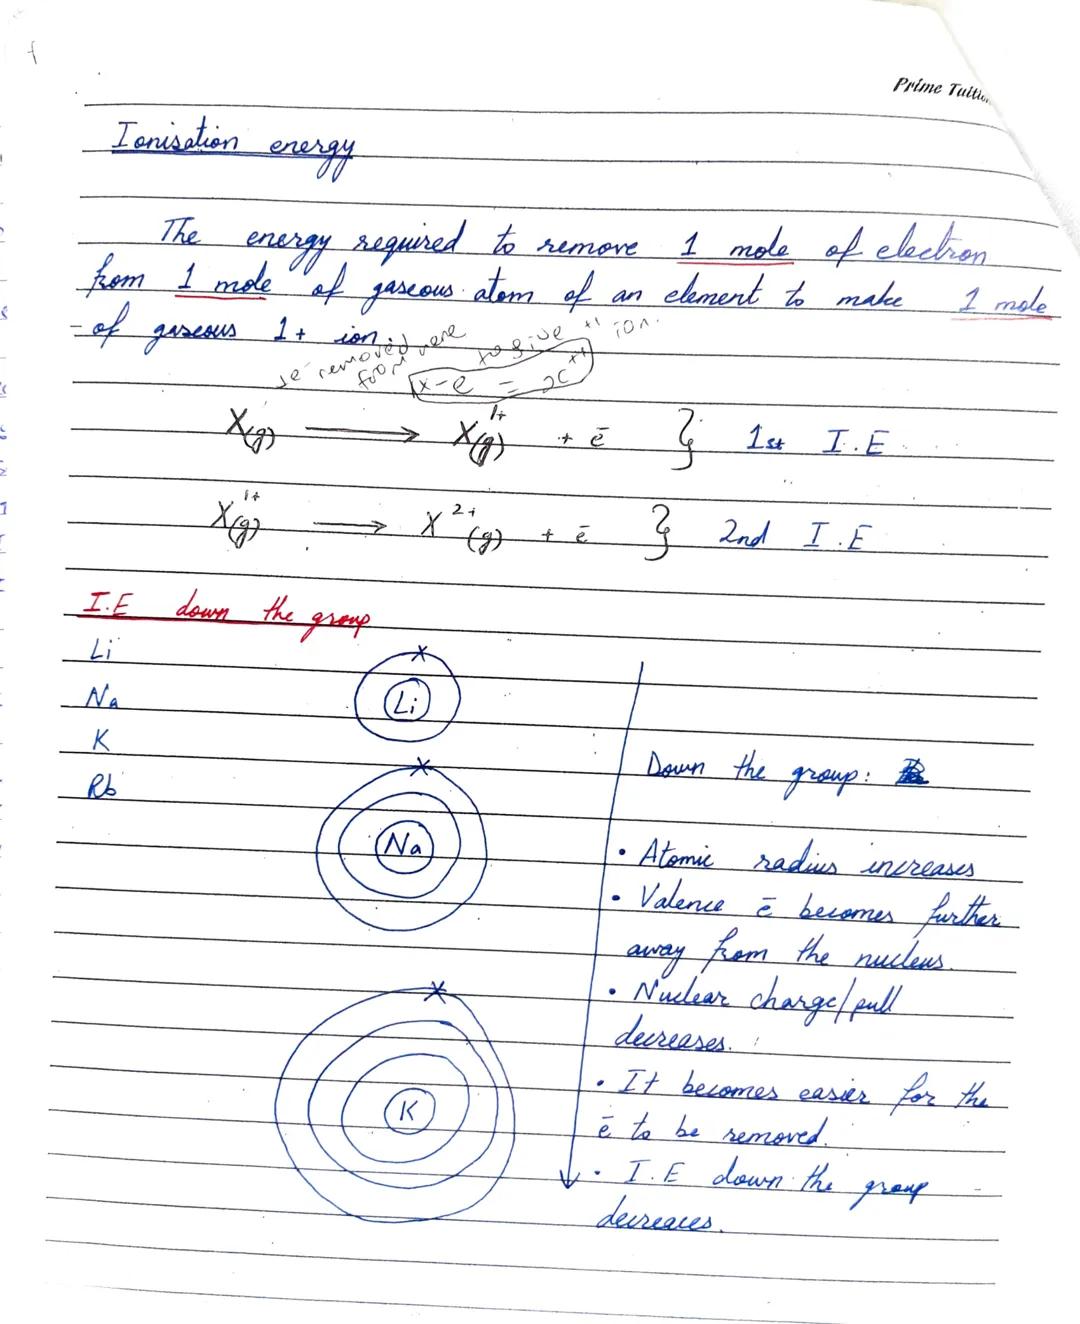 Prime Tuitio
Ionisation energy
The energy required to remove 1 mole of electron
from 1 mole of gaseous atom of an element to make 1 mole
of gaseous 1+ ion.
1e⁻ removed from here to give +1 ion.
x - e = x⁺¹
X(g) ⟶ X¹⁺(g) + ē } 1st I.E
X¹⁺(g) ⟶ X²⁺(g) + ē } 2nd I.E
I.E down the group
Li
Na
K
Rb
Li
Na
K
Down the group:
• Atomic radius increases
• Valence ē becomes further
away from the nucleus.
• Nuclear charge/pull
decreases.
• It becomes easier for the
ē to be removed.
• I.E down the group
decreaces.